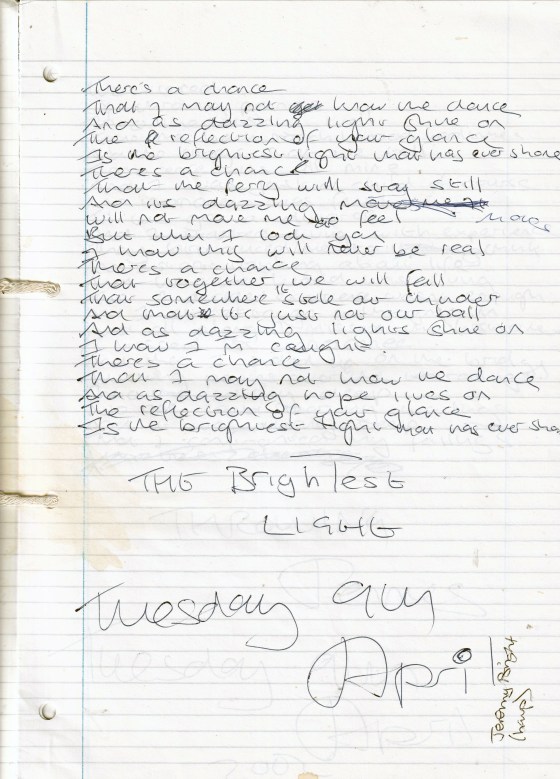 There's a chance
That I may not know the dance
And as dazzling light shine on
The reflection of your glance
Is the brightest light that has ever shone
There's a chance
That the ferry will stay still
And its dazzling moves
will not move me to feel
But when I look you
I know this will never be real
There's a chance
That together, we will fall
That somewhere stole at
And that its just not our ball
And as dazzling lights shine on
I know I'm caught.
There's a chance
That I may not know the dance
And as dazzling hope lives on
The reflection of your glance
Is the brightest light that has ever sho
THE BrighTest
LIGHt
Tuesday 9th
April
Jeremy Bright